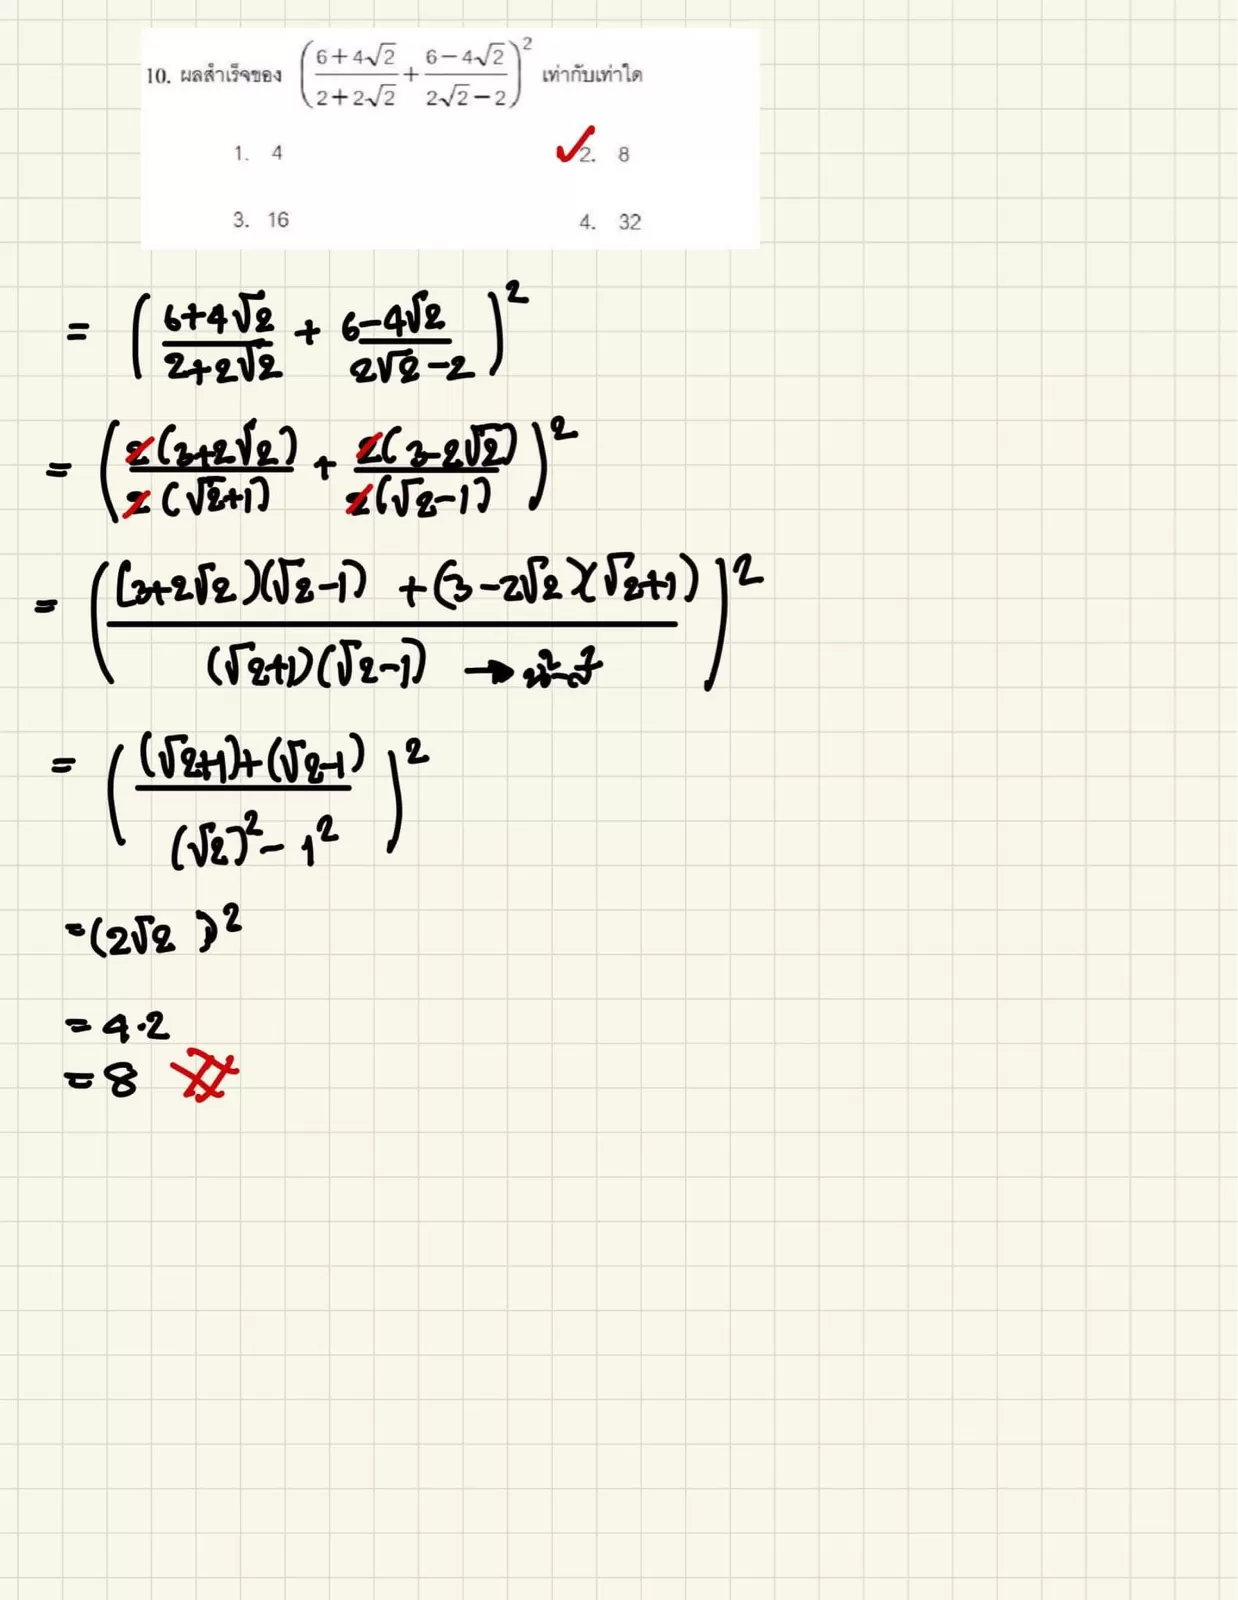 10. ผลสำเร็จของ ((6+4√2)/(2+2√2) + (6−4√2)/(2√2−2))² เท่ากับเท่าใด
1. 4
✓2. 8
3. 16
4. 32
= ((6+4√2)/(2+2√2) + (6−4√2)/(2√2−2))²
= (2(3+2√2)/2(√2+1) + 2(3−2√2)/2(√2−1))²
= (((3+2√2)(√2−1) + (3−2√2)(√2+1))/((√2+1)(√2−1)) →)²
= (((√2+1)+(√2−1))/((√2)²−1²))²
=(2√2)²
= 4·2
= 8